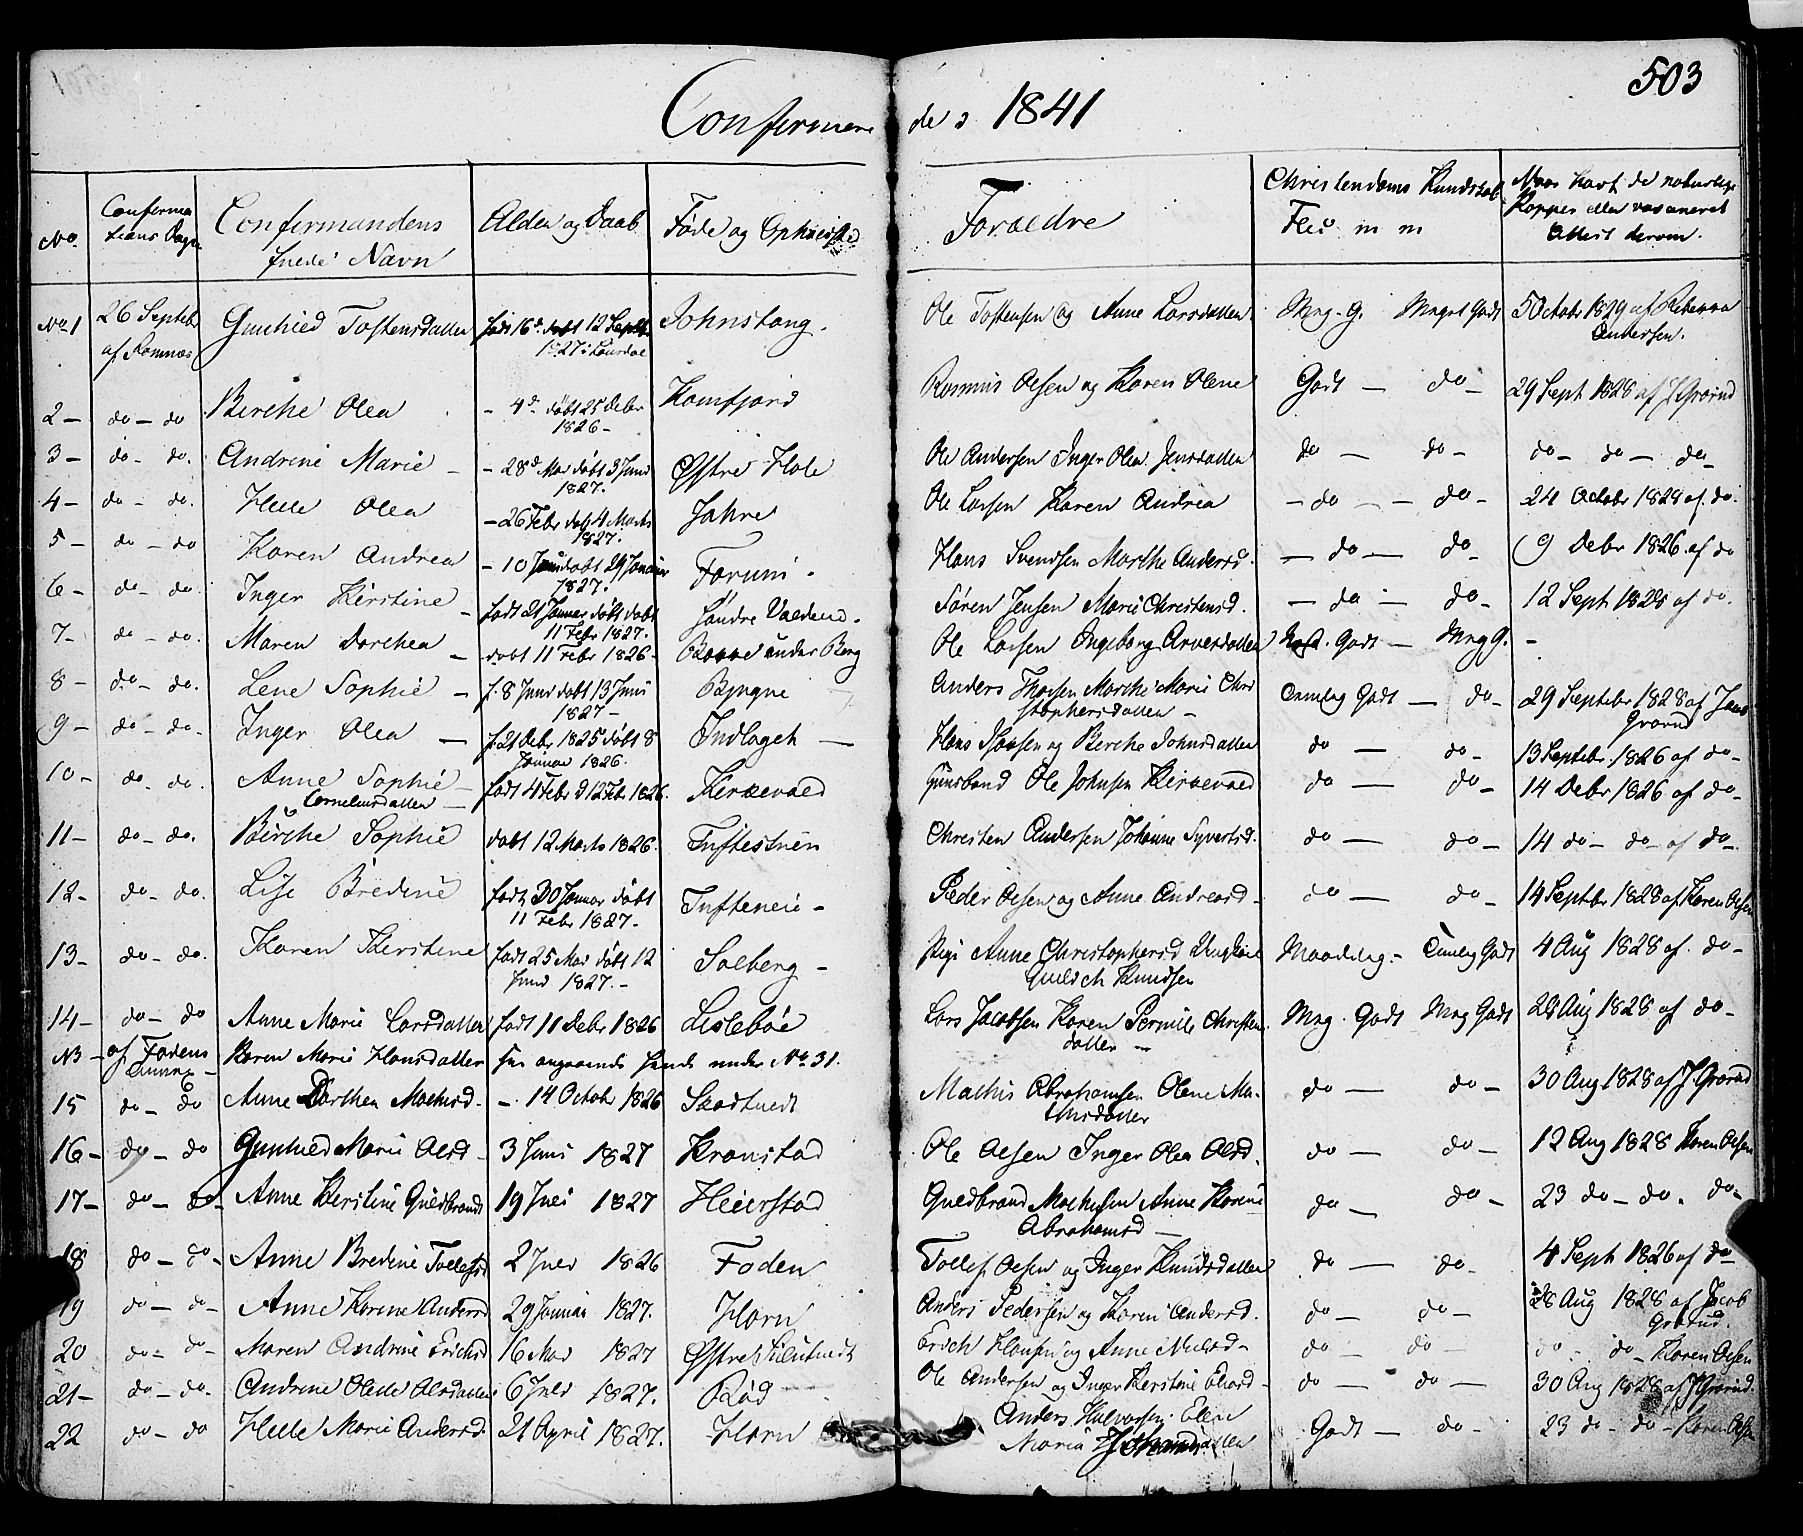 503
Confirmerede 1841
No. Confirmations Dagen Confirmandens fulde Navn Alder og Daab Føde og Opholdsted Forældre Christendoms Kundskab Flid m m Naar havt de naturlige Kopper eller vaccineret Attest derom.
No 1 26 Septebr Gunhild Tostensdatter født 16d døbt 12 Septbr Johnstang. Ole Tostensen og Anne Larsdatter Mng. G. Meget Godt 5 Octobr 1829 af Rebekka
af Ramnæs 1827 i Andersen.
2 – do – do Birthe Olea – 4d døbt 25 Debr Kamfjord Rasmus Olsen og Karen Olene Godt – do – 29 Sept 1828 af J Grorud
1826 –
3 – do – do. Andrine Marie – – 28d Mai døbt 3 Juni Østre Hole Ole Andersen Inger Olea Jensdatter do – do – do – do – do –
1827.
4 – do – do. Helle Olea – 26 Febr døbt 4 Marts Jahre Ole Larsen Karen Andrea – do – – do – 24 Octobr 1828 af do.
1827.
5 – do – do Karen Andrea – 10 døbt 29 Januar Farum – Hans Svendsen Marthe Andersd. – do – do – 9 Debr 1826 af do
1827.
6 – do – do. Inger Kirstine – født 21 Januar døbt døbt Søndre Valdene. Søren Jensen Marie Christensd. – do – do – 12 Sept 1828 af do.
11 Febr 1827.
7 – do – do. Maren Dorthea – døbt 11 Febr 1826 – under Berg Ole Larsen Ingeborg Arvesdatter Godt – Mng G. –
8 – do – do. Lene Sophie – f. 8 Juni døbt 13 Juni Bjugne Anders Thorsen Marthe Marie Christophersdatter – Temlig Godt – do – 29 Septebr 1828 af Jacob
1827 – Grorud
9 – do – do – Inger Olea – f. 21 Debr 1825 døbt 8 Indlaget – Hans og Birthe Johnsdatter do – do – 13 Septebr. 1826 af do –
Januar 1826.
10 – do – do. Anne Sophie – født 4 Febr d 12 Febr 1826. Kirkevold Ole Johnsen Kirkevold do – do – 14 Debr 1826 af do –
Corneliusdatter –
11 – do – do. Birthe Sophie døbt 12 Marts 1826. Tuftestuen Christen Andersen Johanne Syvertsd. do – do – 14 do – do – af do –
12 – do – do. Lise Bredine født 30 Januar døbt Tufteneie – Peder Olsen og Anne Andreasd – do – do – 14 Septbr 1828 af Karen Olsen
11 Febr 1827.
13 – do – do. Karen Kirstine født 25 Mai døbt 12 Solberg – Pige Anne Christophersd Maadelig – Temlig Godt 4 Aug 1828 af do –
Juni 1827. – Knudsen
14 – do – do Anne Marie Larsdatter født 11 Debr 1826 Lislebøe Lars Jacobsen Karen Pernille Christensdatter – Mng. Godt Mng Godt 28 Aug 1828 af do –
NB – af Fodens Karen Marie Hansdatter angaaende under No. 31.
Annex –
15 do – do Anne Dorthea Mathisd – – 14 Octobr 1826 Skadtvedt Mathis Abrahamsen Olene Mathisdatter do – do – 30 Aug 1828 af J Grorud
16 – do – do Gunhild Marie Olsd – 3 Juni 1827 Kronstad Ole Olsen Inger Olea Olsd. do – do – 12 Aug 1828 Karen Olsen
17 – do – do – Anne Kirstine Guldbrands 19 Juli 1827 Heierstad Guldbrand Mathisen Anne Karine do – do – 23 do – do. do –
Abrahamsd –
18 do – do – Anne Bredine Tollefsd 2 Juli 1826 Foden Tollef Olsen og Inger Knudsdatter do – do – 4 Sept 1826 af do
19 do – do – Anne Karine Andersd 29 Januar 1827. Horn Anders Pedersen og Karen Andersd. do – do – 28 Aug 1828 af Jacob
Grorud.
20 do – do – Maren Andrine Erichsd 16 Mai 1827 Østre Erich Hansen og Anne do – do – do – do – Karen Olsen
21 – do – do – Andrine Olette Olsdatter 6 Juli 1827. Rød Ole Andersen og Inger Kirstine – do – do – 30 Aug 1828 af J Grorud.
22 do – do Helle Marie Andersd. 21 April 1827. Horn Anders Halvorsen Ellen Godt – do – 23 do – do – Karen Olsen
Maria